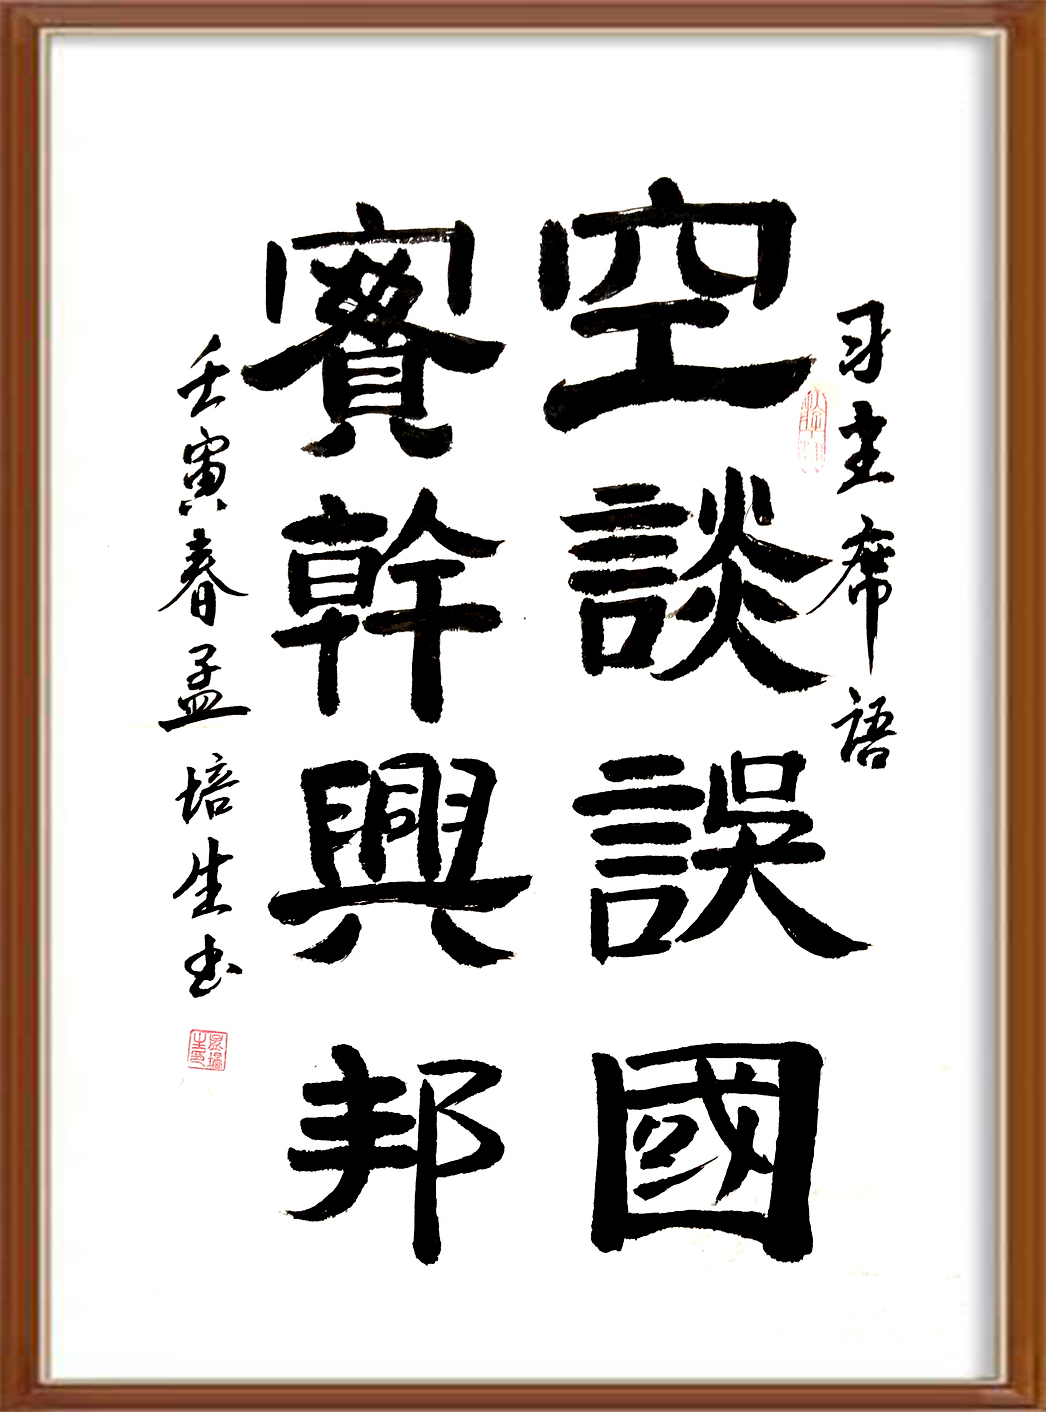 习主席語
空談誤國
實幹興邦
壬寅春孟培生书